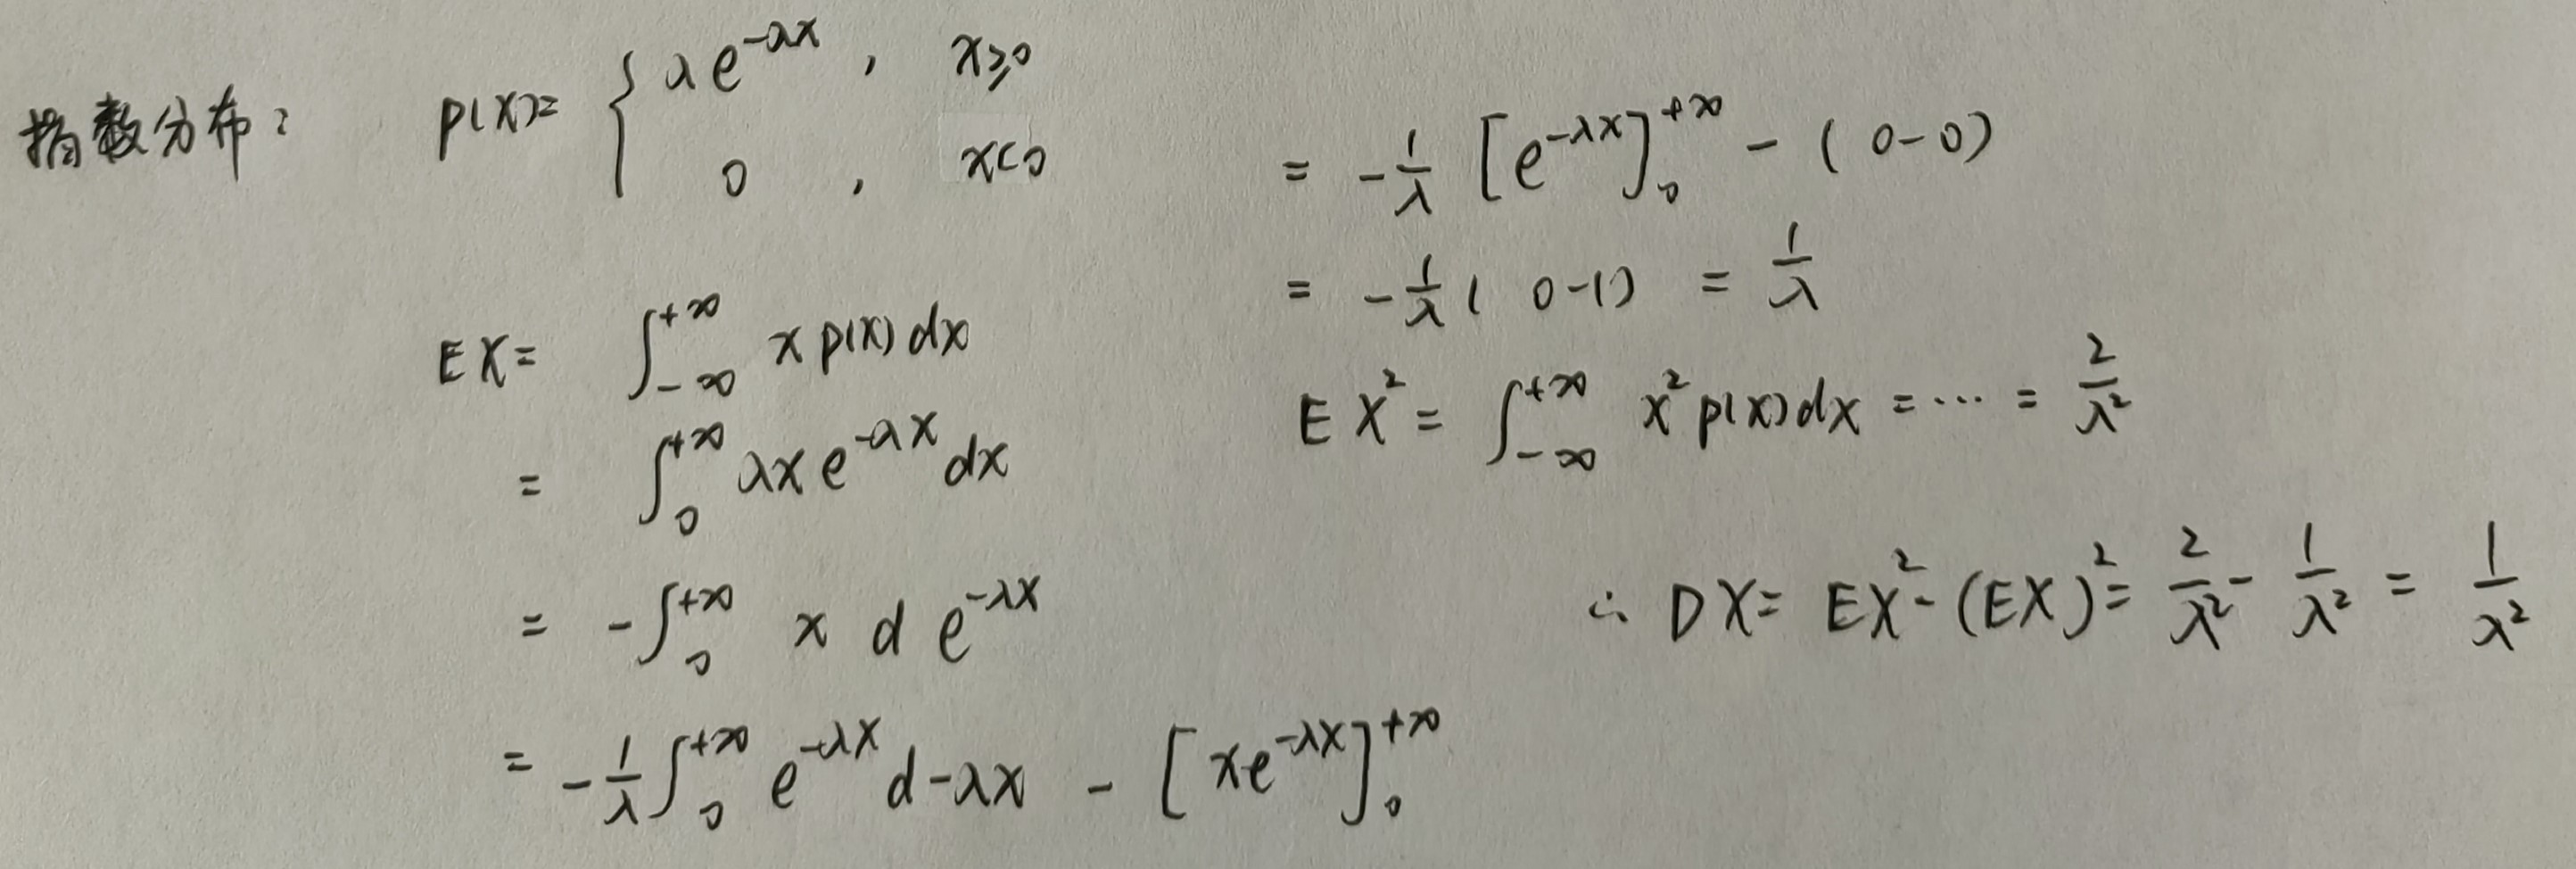 指数分布: p(x)= { λe^{-λx} , x≥0
0 , x<0
EX= ∫_{-∞}^{+∞} x p(x) dx
= ∫_0^{+∞} λx e^{-λx} dx
= -∫_0^{+∞} x d e^{-λx}
= -\frac{1}{λ} ∫_0^{+∞} e^{-λx} d-λx - [xe^{-λx}]_0^{+∞}
= -\frac{1}{λ} [e^{-λx}]_0^{+∞} - (0-0)
= -\frac{1}{λ} (0-1) = \frac{1}{λ}
EX^2 = ∫_{-∞}^{+∞} x^2 p(x) dx = ⋯ = \frac{2}{λ^2}
∴ DX= EX^2 - (EX)^2 = \frac{2}{λ^2} - \frac{1}{λ^2} = \frac{1}{λ^2}